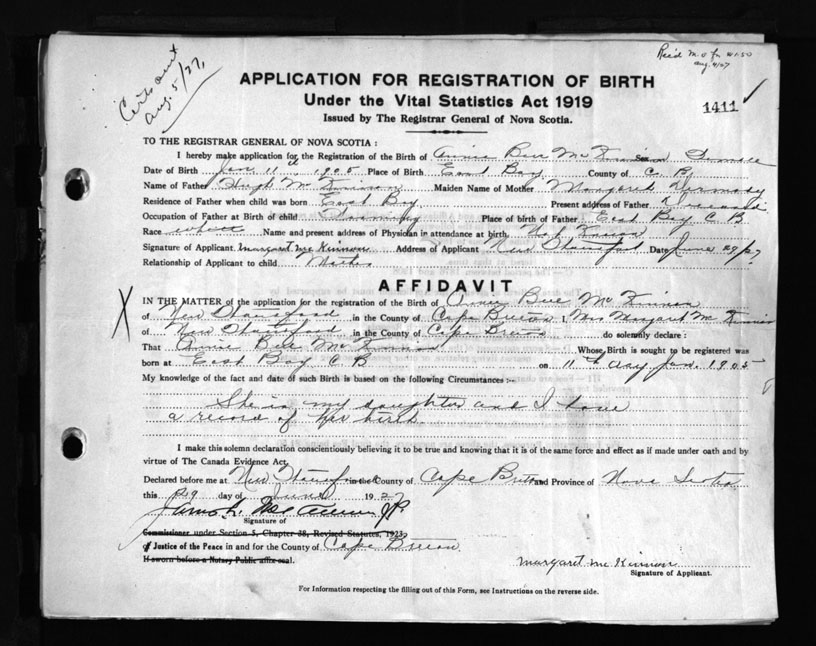 Cert sent
Aug 5/27,
Rec'd M.O. for $1.50
Aug 4/27
APPLICATION FOR REGISTRATION OF BIRTH
Under the Vital Statistics Act 1919
1411
Issued by The Registrar General of Nova Scotia.
TO THE REGISTRAR GENERAL OF NOVA SCOTIA :
I hereby make application for the Registration of the Birth of Annie Bell McKinnon Sex Female
Date of Birth Jan. 11th, 1905 Place of Birth East Bay County of C. B.
Name of Father Hugh McKinnon Maiden Name of Mother Margaret
Residence of Father when child was born East Bay Present address of Father Deceased
Occupation of Father at Birth of child Place of birth of Father East Bay C B
Race white Name and present address of Physician in attendance at birth
Signature of Applicant Margaret McKinnon Address of Applicant New Date June 29/27
Relationship of Applicant to child Mother
AFFIDAVIT
X
IN THE MATTER of the application for the registration of the Birth of Annie Bell McKinnon
of New in the County of Cape Breton I, Mrs Margaret McKinnon
of New in the County of Cape Breton do solemnly declare :
That Annie Bell McKinnon Whose Birth is sought to be registered was
born at East Bay C B on 11th day Jan. 1905
My knowledge of the fact and date of such Birth is based on the following Circumstances :-
She is my daughter and I have
a record of her birth.
I make this solemn declaration conscientiously believing it to be true and knowing that it is of the same force and effect as if made under oath and by
virtue of The Canada Evidence Act.
Declared before me at New in the County of Cape Breton and Province of Nova Scotia
this 29 day of June 1927
J.P.
Signature of
Commissioner under Section 5, Chapter 38, Revised Statutes, 1923,
of Justice of the Peace in and for the County of Cape Breton
If sworn before a Notary Public affix seal.
Margaret McKinnon
Signature of Applicant.
For Information respecting the filling out of this Form, see Instructions on the reverse side.